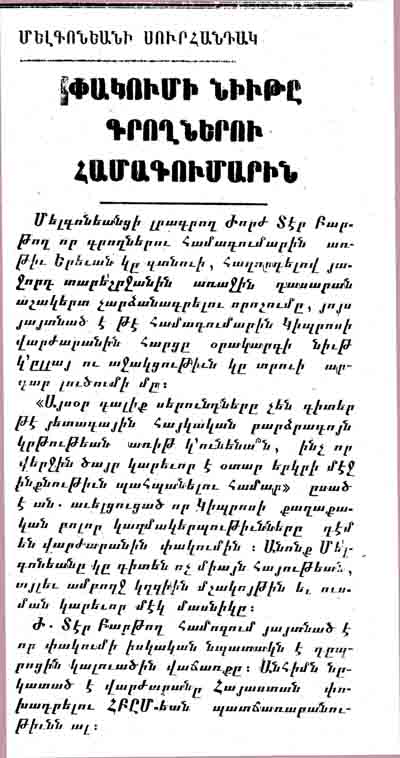 ՄԵԼԳՈՆԵԱՆԻ ՍՈՒՐՀԱՆԴԱԿ
ՓԱԿՈՒՄԻ ՆԻՒԹԸ
ԳՐՈՂՆԵՐՈՒ
ՀԱՄԱԳՈՒՄԱՐԻՆ
Մելգոնեանցի լրագրող Ժորժ Տէր Բար-
թող որ գրողներու Համագումարին առ-
թիւ Երեւան կը գտնուի, Հաղորդելով յա-
ջորդ տարեշրջանին առաջին դասարան
աշակերտ չարձանագրելու որոշումը, յոյս
յայտնած է թէ Համագումարին Կիպրոսի
վարժարանին Հարցը օրակարգի նիւթ
կ'ըլլայ ու աջակցութիւն կը տրուի ար-
դար լուծումի մը:
«Այսօր գալիք սերունդները չեն գիտեր
թէ յետագային Հայկական բարձրագոյն
կրթութեան առիթ կ'ունենա՞ն, ինչ որ
վերջին ծայր կարեւոր է օտար երկրի մէջ
ինքնութիւն պահպանելու Համար» ըսած
է ան. աւելցուցած որ Կիպրոսի քաղաքա-
կան բոլոր կազմակերպութիւնները դէմ
են վարժարանին փակումին: Անոնք Մել-
գոնեանը կը դիտեն ոչ միայն Հայութեան,
այլեւ ամբողջ կղզիին մշակոյթին եւ ուս-
ման կարեւոր մէկ մասնիկը:
Ժ. Տէր Բարթող Համոզում յայտնած է
որ փակումի իսկական նպատակն է դպ-
րոցին կալուածին վաճառքը: Անհիմն նկ-
կատած է վարժարանը Հայաստան փո-
խադրելու ՀԲԸՄ-եան պատճառաբանու-
թիւնն ալ: